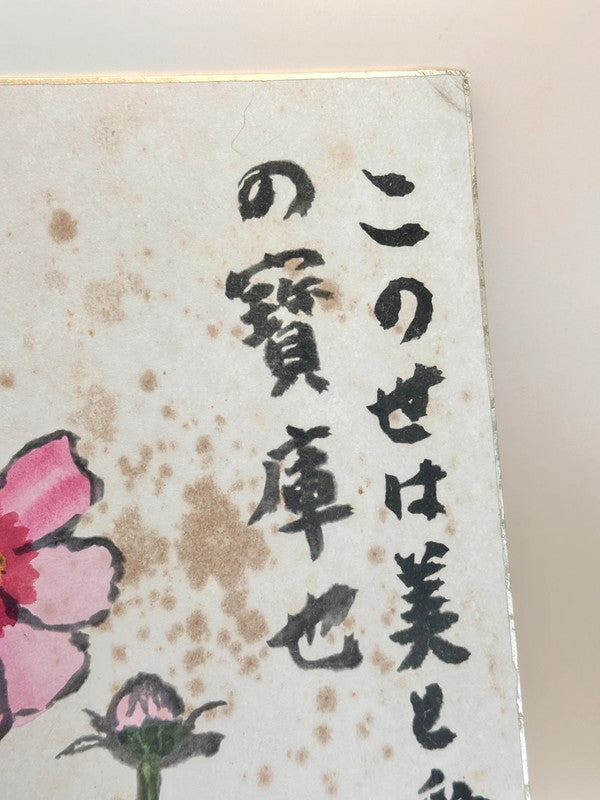 このせは美と
の寶庫也